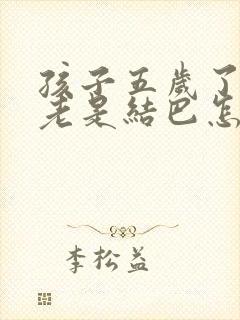 孩子五歲了
老是結巴怎
李松益